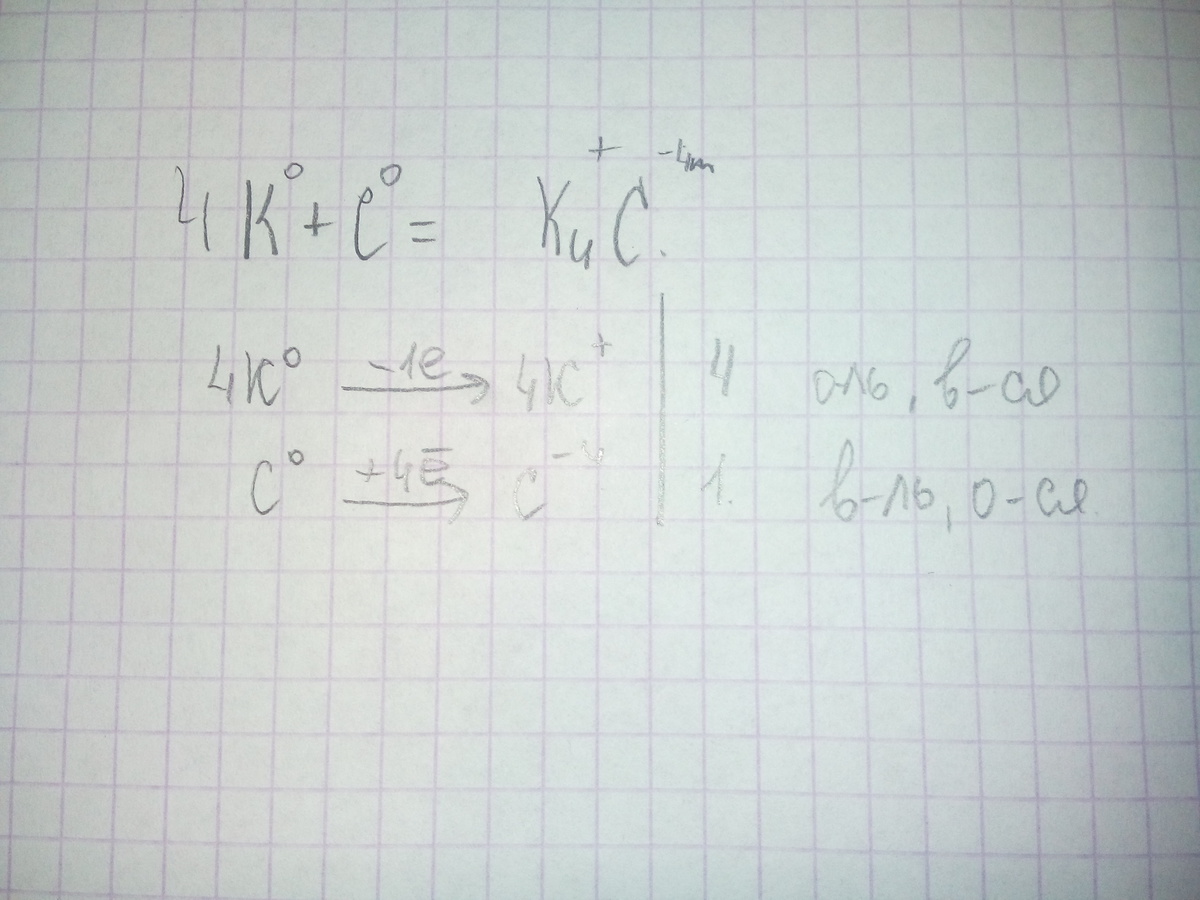 4K⁰ + C⁰ = K₄⁺C⁻⁴
4K⁰ -1e → 4K⁺ | 4 о-ль, в-ся
C⁰ +4ē → C⁻⁴ | 1. в-ль, о-ся.